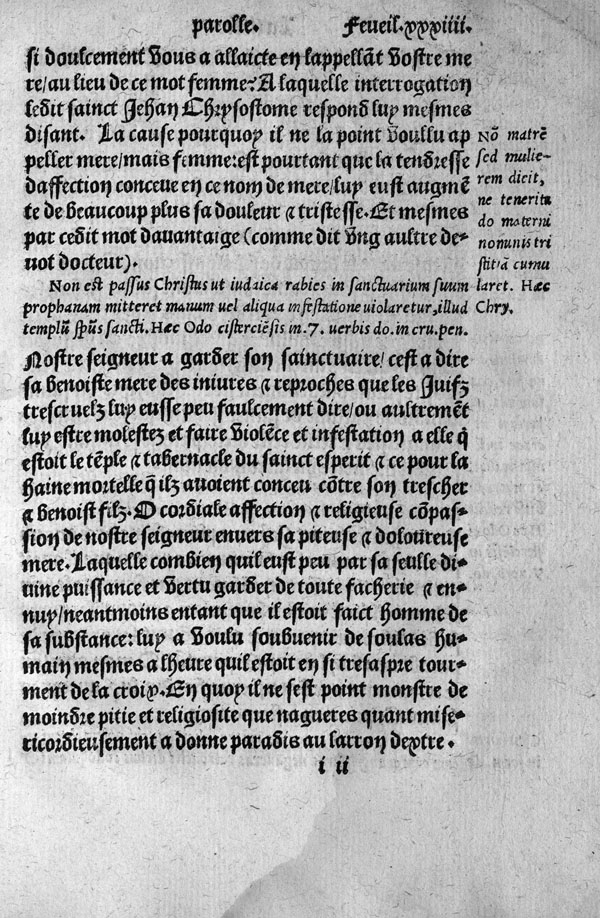 parolle. Feueil.xxxiiii.
si doulcement vous a allaicte en lappellãt vostre me
re/au lieu de ce mot femme? A laquelle interrogation
ledit sainct Jehan Chrysostome respond luy mesmes
disant. La cause pourquoy il ne la point voullu ap
peller mere/mais femme:est pourtant que la tendresse
daffection conceue en ce nom de mere/luy eust augmẽ
te de beaucoup plus sa douleur ⁊ tristesse. Et mesmes
par cedit mot davantaige (comme dit vng aultre de-
vot docteur).
Nõ matrẽ
sed mulie-
rem dicit,
ne tenerita
do materni
nominis tri
stitiã cumu
laret. Hæc
Chry.
Non est passus Christus ut iudaica rabies in sanctuarium suum
prophanam mitteret manum vel aliqua infestatione uiolaretur, illud
templũ spũs sancti. Hæc Odo cisterciẽsis in .7. uerbis do. in cru. pen.
Nostre seigneur a garder son sainctuaire/ cest a dire
sa benoiste mere des iniures ⁊ reproches que les Juifz
trescruelz luy eusse peu faulcement dire/ou aultremẽt
luy estre molestez et faire violẽce et infestation a elle q̃
estoit le tẽple ⁊ tabernacle du sainct esperit ⁊ ce pour la
haine mortelle q̃ ilz avoient conceu cõtre son trescher
⁊ benoist filz. O cordiale affection ⁊ religieuse cõpas-
sion de nostre seigneur envers sa piteuse ⁊ doloureuse
mere. Laquelle combien quil eust peu par sa seulle di-
uine puissance et vertu garder de toute facherie ⁊ en-
nuy/neantmoins entant que il estoit faict homme de
sa substance: luy a voulu soubuenir de soulas hu-
main mesmes a lheure quil estoit en si tresaspre tour-
ment de la croix. En quoy il ne sest point monstre de
moindre pitie et religiosite que nagueres quant mise-
ricordieusement a donne paradis au larron dextre.
i ii